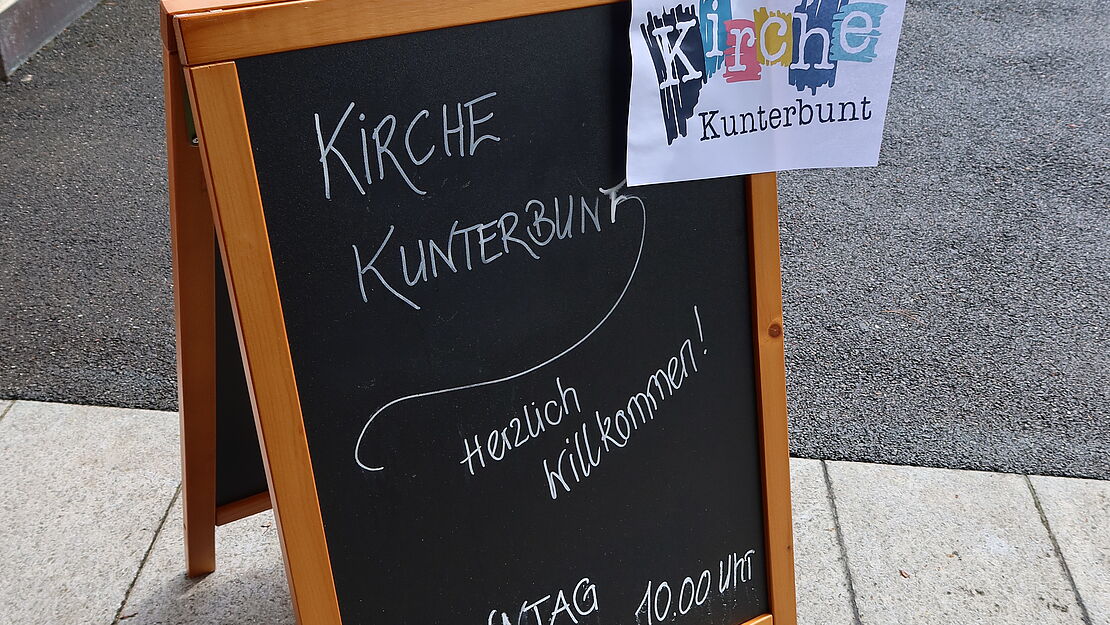 Kirche
Kunterbunt
KIRCHE
KUNTERBUNT
Herzlich
Willkommen!
NTAG 10.00 Uhr